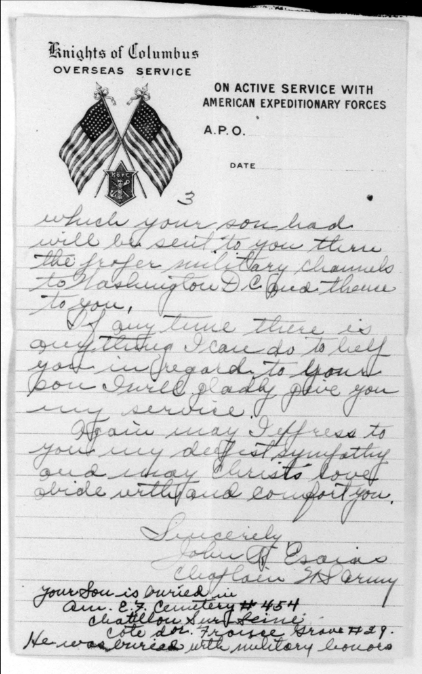 Knights of Columbus
OVERSEAS SERVICE
ON ACTIVE SERVICE WITH
AMERICAN EXPEDITIONARY FORCES
A.P.O.
DATE
3
which your son had
will be sent to you thru
the proper military channels
to Washington D.C. and thence
to you.
If any time there is
anything I can do to help
you in regard to your
son I will gladly give you
my service.
Again may I express to
you my deepest sympathy
and may Christ's love
abide with and comfort you.
Sincerely
John
Chaplain US Army
Your Son is buried in
Am. E.F. Cemetery # 454
Chatillon Sur Seine
Cote dor. France Grave #29.
He was buried with military honors